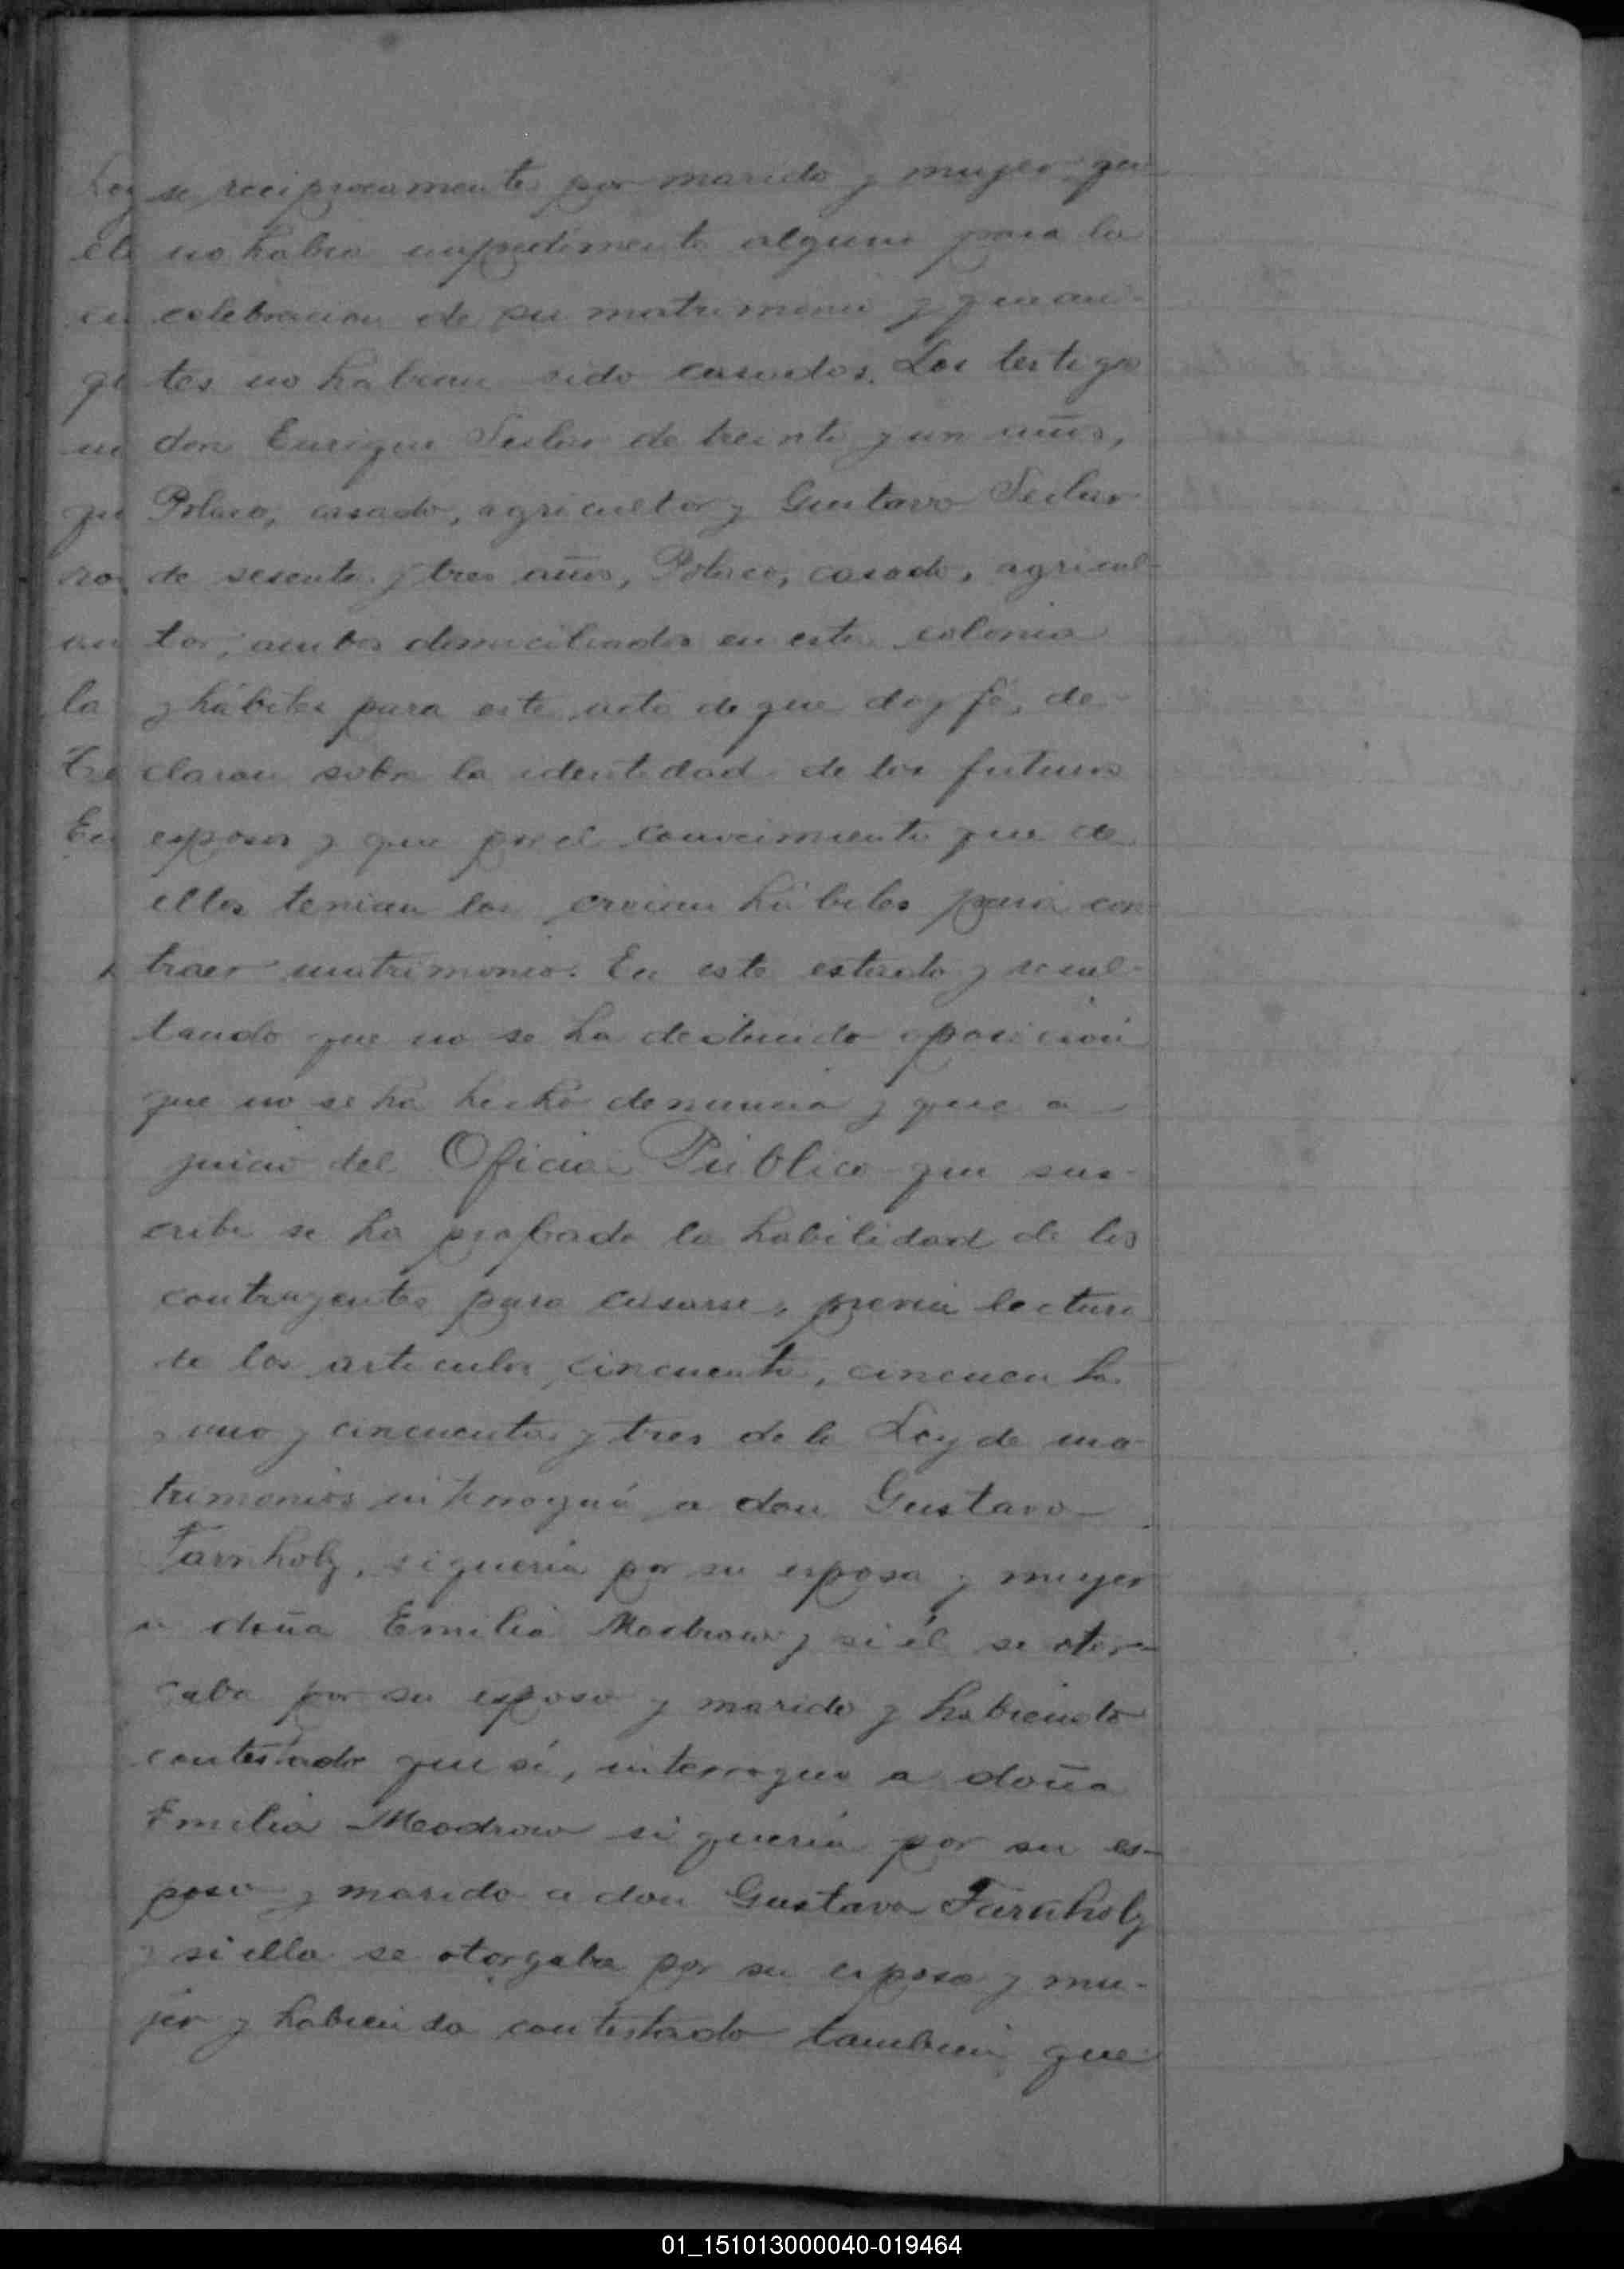 se reciprocamente por marido y mujer que
no habia impedimento alguno para la
celebracion de su matrimonio y que an-
tes no habian sido casados. Los testigos
don Enrique de treinta y un años,
Polaco, casado, agricultor y Gustavo
de sesenta y tres años, Polaco, casado, agricul-
tor, ambos domiciliados en esta colonia
y hábiles para este acto de que doy fé, de-
claran sobre la identidad de los futuros
esposos y que por el conocimiento que de
ellos tenian los creian hábiles para con-
traer matrimonio. En este estado y resul-
tando que no se ha deducido oposición
que no se ha hecho denuncia y que a
juicio del Oficial Público que sus-
cribe se ha probado la habilidad de los
contrayentes para casarse, previa lectura
de los articulos cincuenta, cincuenta
y uno y cincuenta y tres de la Ley de ma-
trimonios interrogué a don Gustavo
Farnholz, si queria por su esposa y mujer
a doña Emilia Modrow y si él se otor-
gaba por su esposo y marido y habiendo
contestado que sí, interrogue a doña
Emilia Modrow si queria por su es-
poso y marido a don Gustavo Farnholz
y si ella se otorgaba por su esposa y mu-
jer y habiendo contestado tambien que
01_151013000040-019464